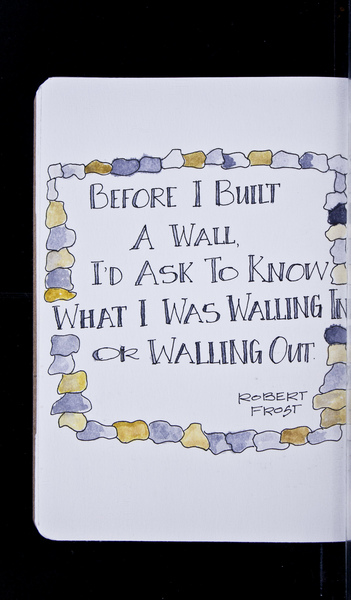 BEFORE I BUILT
A WALL,
I'D ASK TO KNOW
WHAT I WAS WALLING IN
OR WALLING OUT.
ROBERT
FROST